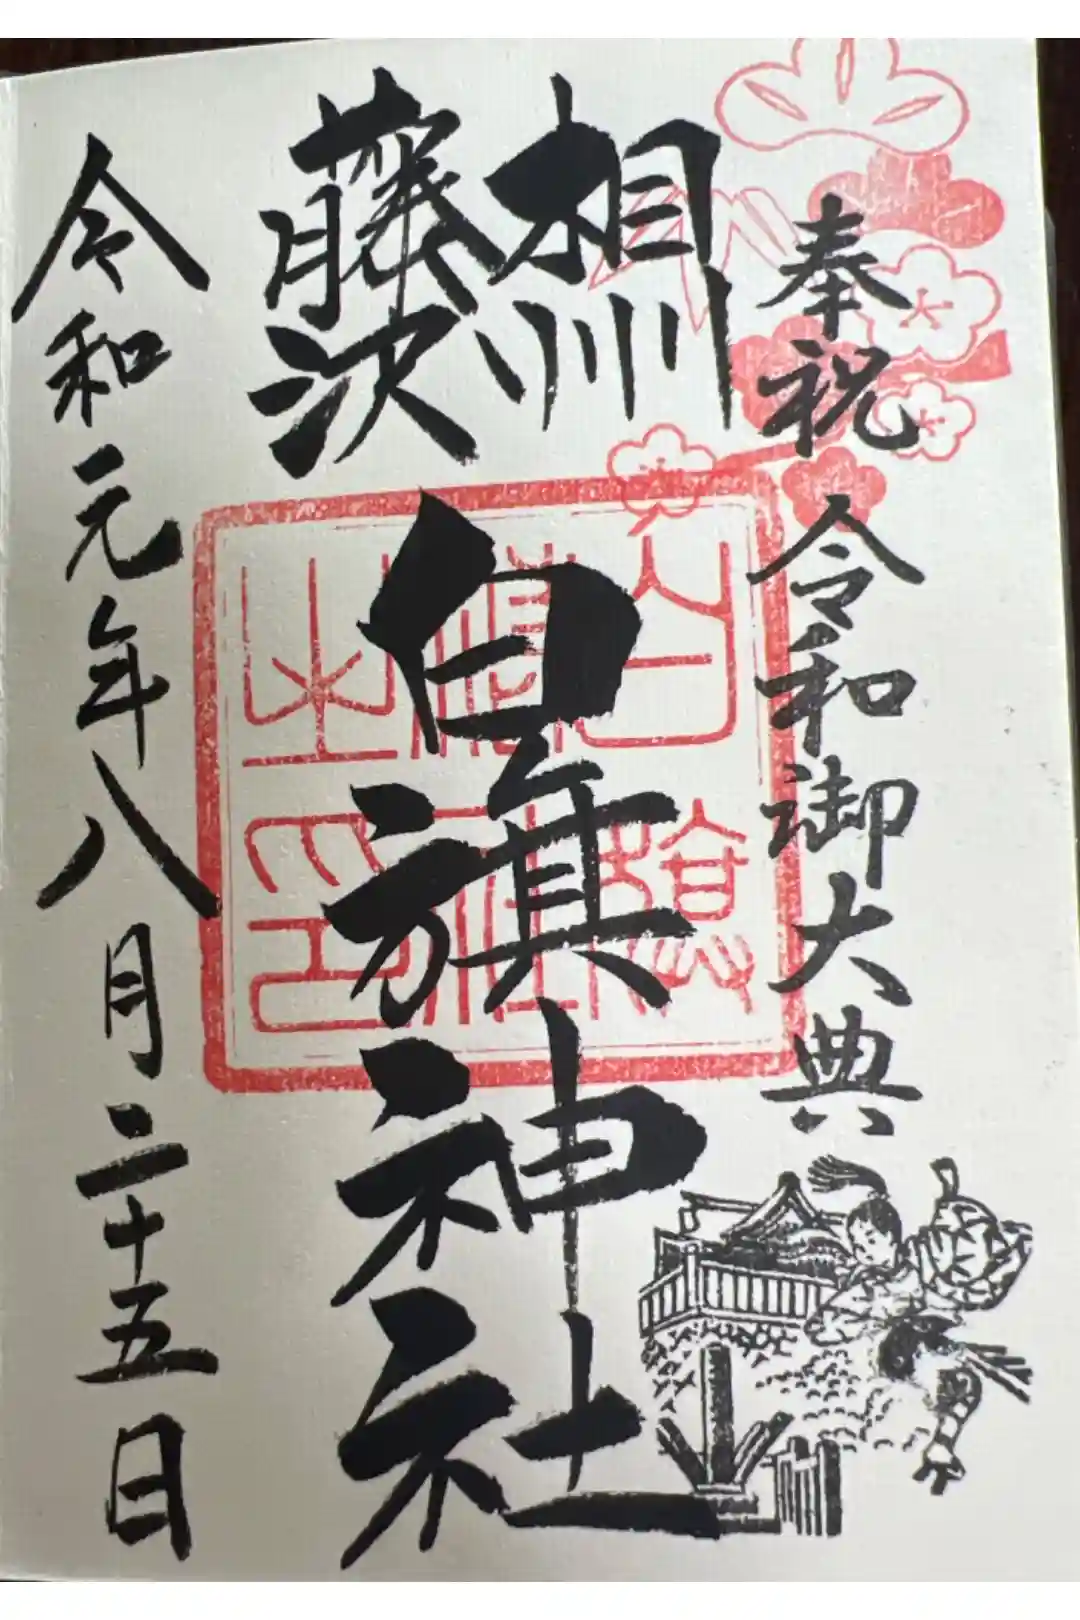 奉祝 令和御大典
相州
藤沢
白旗神社
令和元年八月二十五日
之印